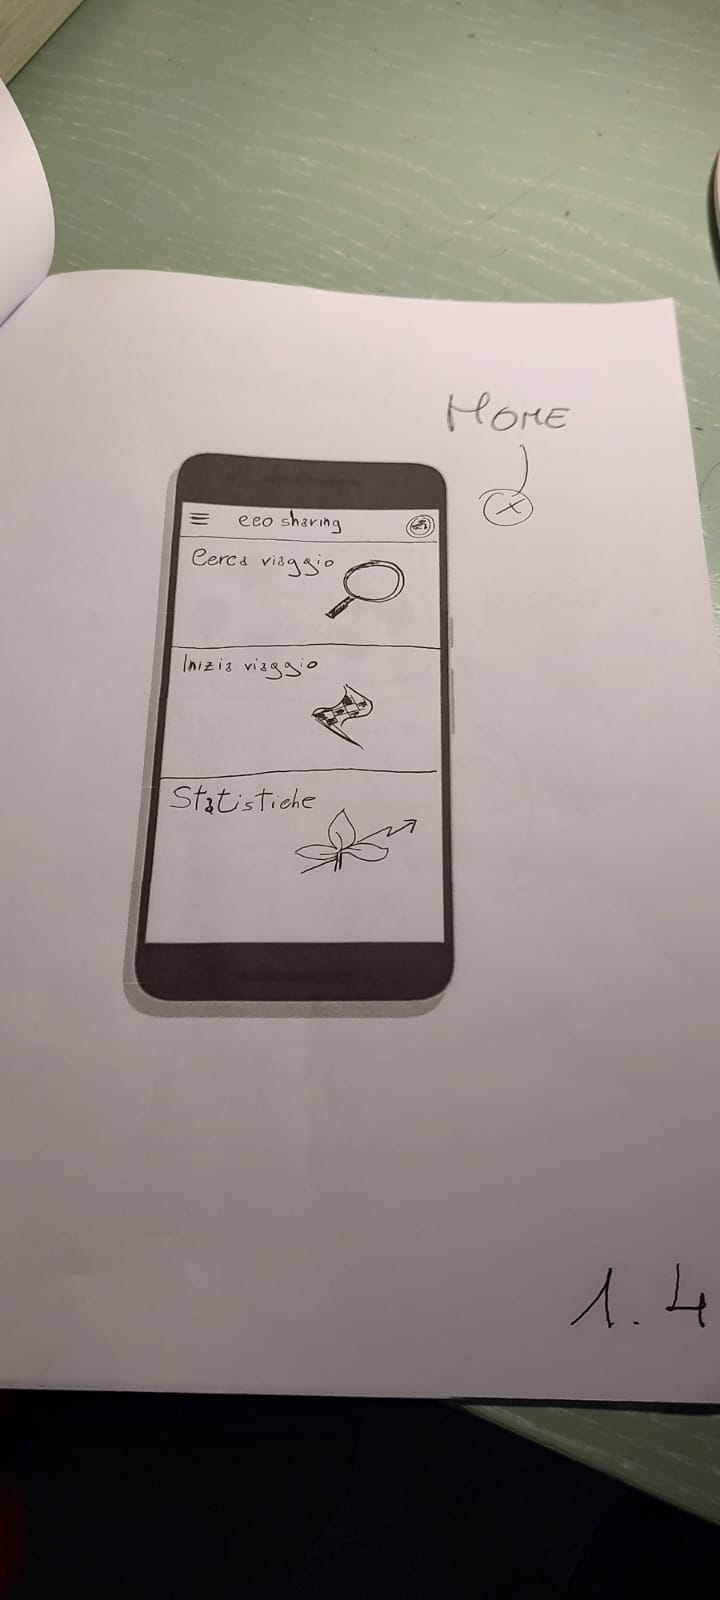 HOME
x
eco sharing
Cerca viaggio
Inizia viaggio
Statistiche
1.4